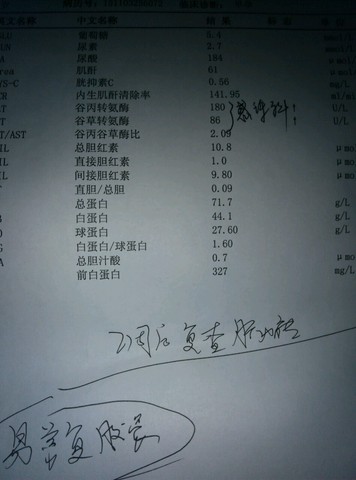 英文名称 中文名称 结果
葡萄糖 5.4 mmol
尿素 2.7 mmol
尿酸 184
urea 肌酐 61
YS-C 胱抑素C 0.56 mg/L
内生肌酐清除率 141.95 ml/m
谷丙转氨酶 180 感染科!
谷草转氨酶 86
T/AST 谷丙谷草酶比 2.09
IL 总胆红素 10.8 μmo
IL 直接胆红素 1.0 μmo
IL 间接胆红素 9.80 μmo
直胆/总胆 0.09
总蛋白 71.7 g/L
白蛋白 44.1 g/L
球蛋白 27.60 g/L
白蛋白/球蛋白 1.60
总胆汁酸 0.7 μmo
前白蛋白 327 mg/L
2周后复查肝功能
易善复胶囊